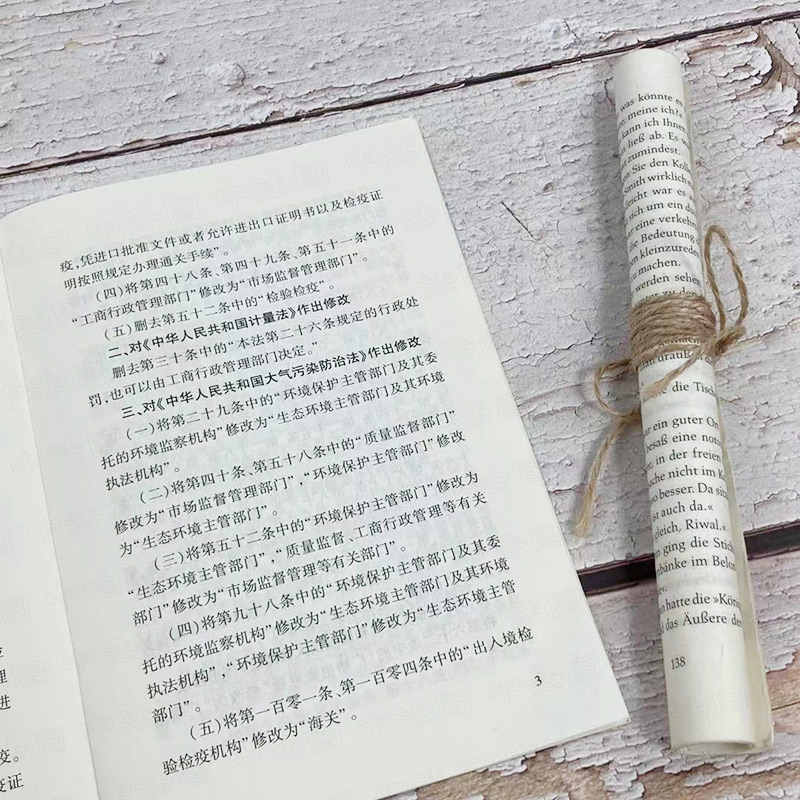 疫,凭进口批准文件或者允许进出口证明书以及检疫证
明按照规定办理通关手续”。
(四)将第四十八条、第四十九条、第五十一条中的
“工商行政管理部门”修改为“市场监督管理部门”。
(五)删去第五十二条中的“检验检疫”。
二、对《中华人民共和国计量法》作出修改
删去第三十条中的“本法第二十六条规定的行政处
罚,也可以由工商行政管理部门决定。”
三、对《中华人民共和国大气污染防治法》作出修改
(一)将第二十九条中的“环境保护主管部门及其委
托的环境监察机构”修改为“生态环境主管部门及其环境
执法机构”。
(二)将第四十条、第五十八条中的“质量监督部门”
修改为“市场监督管理部门”,“环境保护主管部门”修改
为“生态环境主管部门”。
(三)将第五十二条中的“环境保护主管部门”修改为
“生态环境主管部门”,“质量监督、工商行政管理等有关
部门”修改为“市场监督管理等有关部门”。
(四)将第九十八条中的“环境保护主管部门及其委
托的环境监察机构”修改为“生态环境主管部门及其环境
执法机构”,“环境保护主管部门”修改为“生态环境主管
部门”。
(五)将第一百零一条、第一百零四条中的“出入境检
验检疫机构”修改为“海关”。
3
理
进
疫。
疫证
was könnte es
meine ich?«
kann ich Ihnen
ließ ab. Es
zumindest.
Sie den
Smith wirklich
leicht war es
sich um ein
eine
die Bedeutung
kleinzureden
machen.
werden sehen
zu den
die Tisch
ein guter
besaß eine
in der freien
nicht im
so besser. Da
ist auch da.«
gleich, Riwal.«
ging die Stich
im
hatte die »König
das Äußere der
138